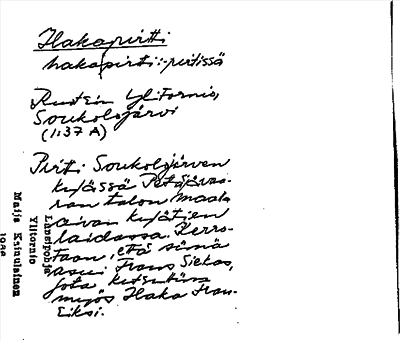 Hakapirtti
hakapirtti:-pirtissä
Ruotsin Ylitornio,
Soukolojärvi
(1:37 A)
Pirtti Soukolojärven
kylässä Petäjävaa-
ran talon maalla
aivan kylätien
laidassa. Kerro-
taan, että siinä
asui Frans Siekas,
jota kutsuttiin
myös Haka Fran-
siksi.
Länsipohja
Ylitornio
Maija Kainulainen